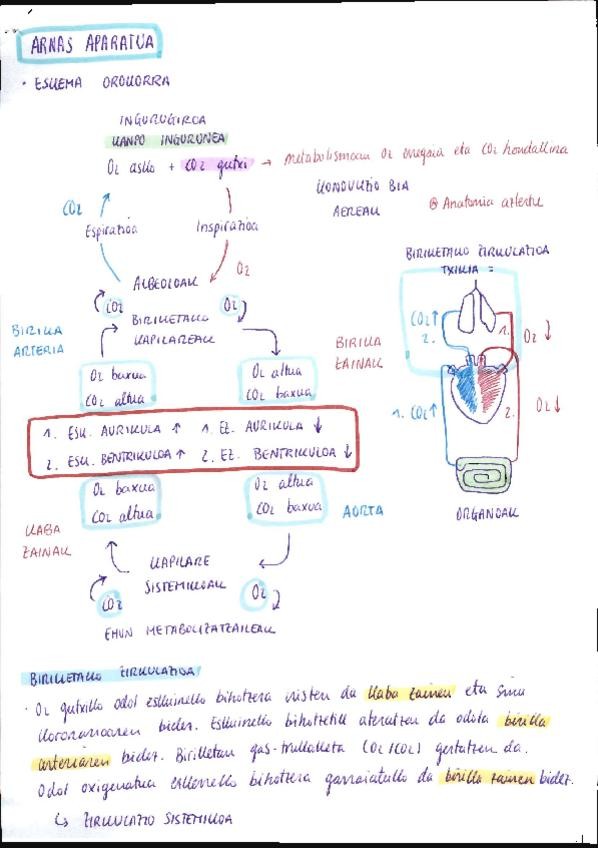 ARNAS APARATUA
· ESKEMA OROKORRA
INGURUGIROA
KANPO INGURUNEA
O2 asko + CO2 gutxi → metabolismoan O2 eta CO2 hondakina
KONDUKZIO BIA
AEREAK
CO2
Espirazioa
Inspirazioa
O2
ALBEOLOAK
CO2
O2
BIRIKETAKO
KAPILAREAK
BIRIKA
ARTERIA
BIRIKA
ZAINAK
O2 baxua
CO2 altua
O2 altua
CO2 baxua
1. ESK. AURIKULA ↑ 1. EZ. AURIKULA ↓
2. ESK. BENTRIKULOA ↑ 2. EZ. BENTRIKULOA ↓
O2 baxua
CO2 altua
O2 altua
CO2 baxua
KABA
ZAINAK
AORTA
KAPILARE
SISTEMIKOAK
CO2
O2
EHUN METABOLIZATZAILEAK
Anatomia aztertu
BIRIKETAKO ZIRKULAZIOA
TXIKIA =
CO2↑
2.
1.
O2 ↓
1. CO2↑
2.
O2↓
ORGANOAK
BIRIKETAKO ZIRKULAZIOA
· O2 gutxiko odol eskuineko bihotzera iristen da kaba zainen eta sinu
koronarioaren bidez. Eskuineko bihotzetik ateratzen da odola birika
arteriaren bidez. Biriketan gas-trukaketa (O2/CO2) gertatzen da.
Odol oxigenatua ezkerreko bihotzera garraiatuko da birika zainen bidez.
↳ ZIRKULAZIO SISTEMIKOA